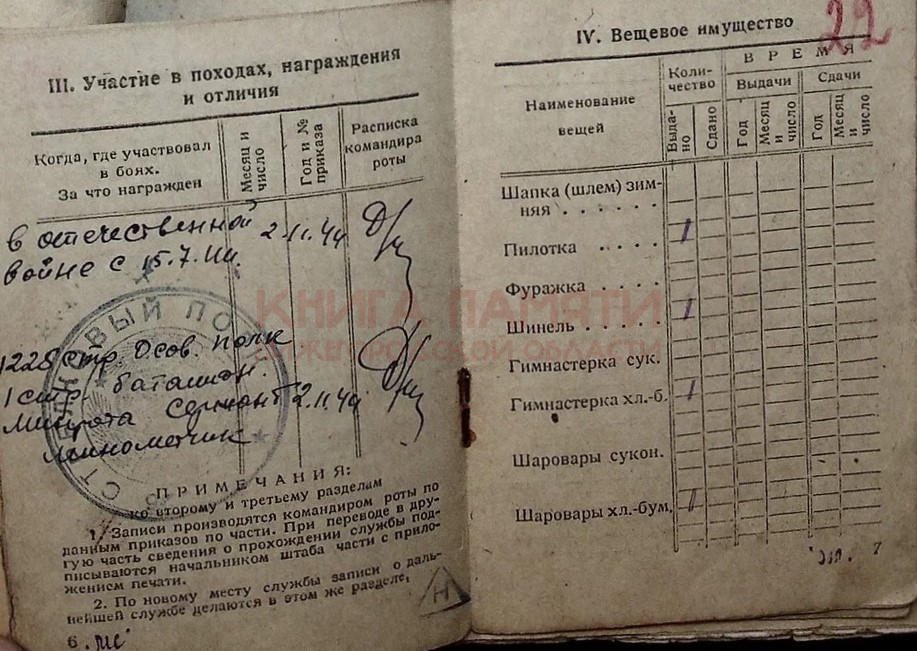 III. Участие в походах, награждения
и отличия
Когда, где участвовал
в боях.
За что награжден
Месяц и
число
Год и №
приказа
Расписка
командира
роты
в отечественной
войне с 15.7.41г.
2.11.44
1228 стр. Осов. полк
1 стр. баталион.
Минрота Сержант 2.11.44
Минометчик
СТРЕЛКОВЫЙ ПОЛК
ПРИМЕЧАНИЯ:
ко второму и третьему разделам
1. Записи производятся командиром роты по
данным приказов по части. При переводе в дру-
гую часть сведения о прохождении службы под-
писываются начальником штаба части с прило-
жением печати.
2. По новому месту службы записи о даль-
нейшей службе делаются в этом же разделе,
Н
6
22
IV. Вещевое имущество
Наименование
вещей
Коли-
чество
ВРЕМЯ
Выдачи
Сдачи
Выда-
но
Сдано
Год
Месяц
и
число
Год
Месяц
и
число
Шапка (шлем) зим-
няя . . . . . .
Пилотка . . . . 1
Фуражка . . . .
Шинель . . . . . 1
Гимнастерка сук.
Гимнастерка хл.-б. 1
Шаровары сукон.
Шаровары хл.-бум. 1
7
КНИГА ПАМЯТИ
НИЖЕГОРОДСКОЙ ОБЛАСТИ